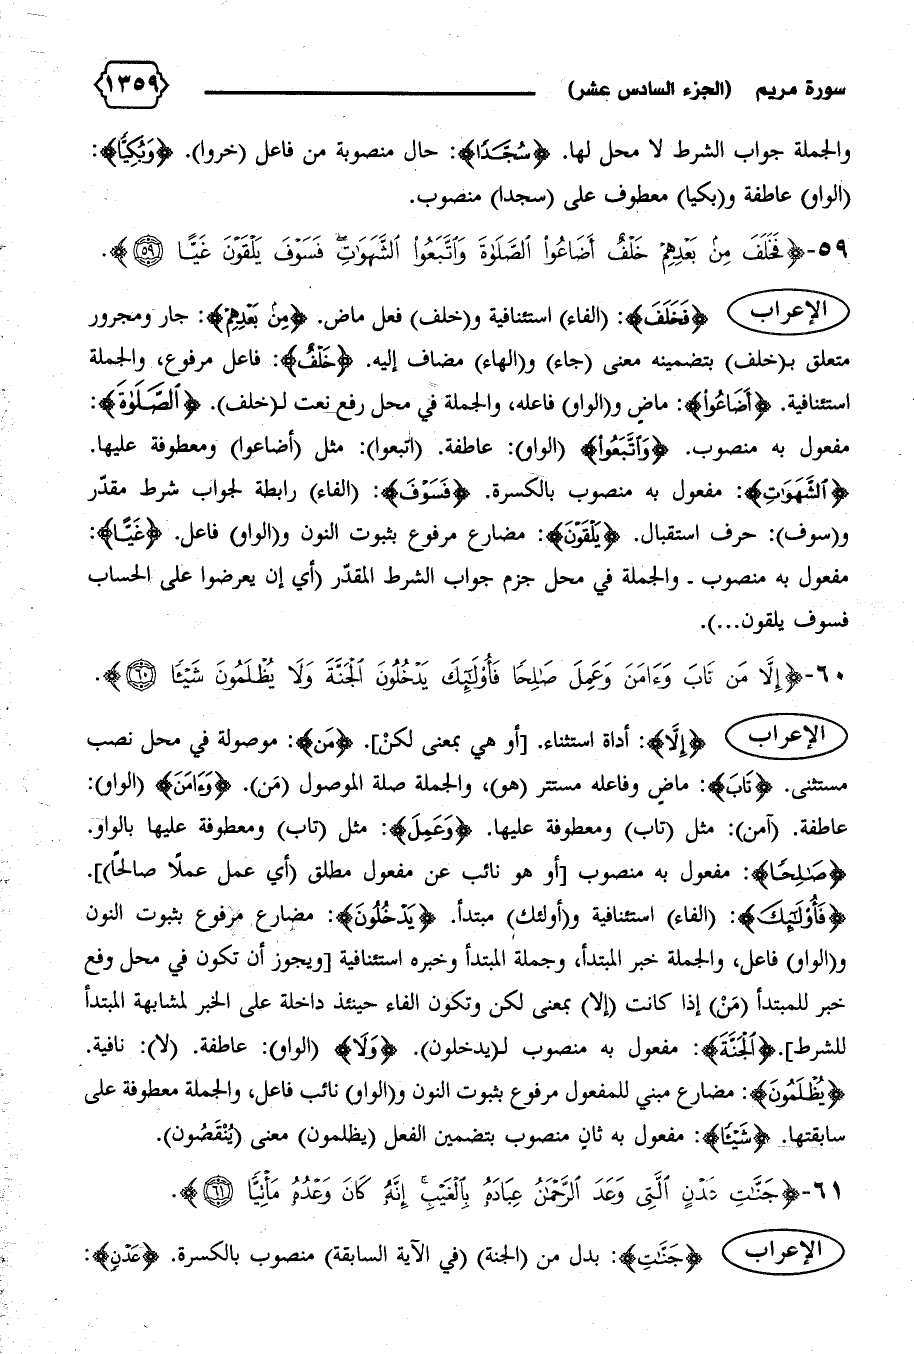 سورة مريم (الجزء السادس عشر) ١٣٥٩
والجملة جواب الشرط لا محل لها. ﴿سُجَّدًا﴾: حال منصوبة من فاعل (خروا). ﴿وَبُكِيًّا﴾:
(الواو) عاطفة و(بكيا) معطوف على (سجدا) منصوب.
٥٩-﴿فَخَلَفَ مِنۢ بَعْدِهِمْ خَلْفٌ أَضَاعُوا۟ ٱلصَّلَوٰةَ وَٱتَّبَعُوا۟ ٱلشَّهَوَٰتِ ۖ فَسَوْفَ يَلْقَوْنَ غَيًّا ٥٩﴾.
الإعراب ﴿فَخَلَفَ﴾: (الفاء) استئنافية و(خلف) فعل ماض. ﴿مِنۢ بَعْدِهِمْ﴾: جار ومجرور
متعلق بـ(خلف) بتضمينه معنى (جاء) و(الهاء) مضاف إليه. ﴿خَلْفٌ﴾: فاعل مرفوع، والجملة
استئنافية. ﴿أَضَاعُوا۟﴾: ماضٍ و(الواو) فاعله، والجملة في محل رفع نعت لـ(خلف). ﴿ٱلصَّلَوٰةَ﴾:
مفعول به منصوب. ﴿وَٱتَّبَعُوا۟﴾ (الواو): عاطفة. (اتبعوا): مثل (أضاعوا) ومعطوفة عليها.
﴿ٱلشَّهَوَٰتِ﴾: مفعول به منصوب بالكسرة. ﴿فَسَوْفَ﴾: (الفاء) رابطة لجواب شرط مقدّر
و(سوف): حرف استقبال. ﴿يَلْقَوْنَ﴾: مضارع مرفوع بثبوت النون و(الواو) فاعل. ﴿غَيًّا﴾:
مفعول به منصوب ـ والجملة في محل جزم جواب الشرط المقدّر (أي إن يعرضوا على الحساب
فسوف يلقون...).
٦٠-﴿إِلَّا مَن تَابَ وَءَامَنَ وَعَمِلَ صَٰلِحًا فَأُو۟لَٰٓئِكَ يَدْخُلُونَ ٱلْجَنَّةَ وَلَا يُظْلَمُونَ شَيْـًٔا ٦٠﴾.
الإعراب ﴿إِلَّا﴾: أداة استثناء. [أو هي بمعنى لكنْ]. ﴿مَن﴾: موصولة في محل نصب
مستثنى. ﴿تَابَ﴾: ماضٍ وفاعله مستتر (هو)، والجملة صلة الموصول (مَن). ﴿وَءَامَنَ﴾ (الواو):
عاطفة. (آمن): مثل (تاب) ومعطوفة عليها. ﴿وَعَمِلَ﴾: مثل (تاب) ومعطوفة عليها بالواو.
﴿صَٰلِحًا﴾: مفعول به منصوب [أو هو نائب عن مفعول مطلق (أي عمل عملًا صالحًا)].
﴿فَأُو۟لَٰٓئِكَ﴾: (الفاء) استئنافية و(أولئك) مبتدأ. ﴿يَدْخُلُونَ﴾: مضارع مرفوع بثبوت النون
و(الواو) فاعل، والجملة خبر المبتدأ، وجملة المبتدأ وخبره استئنافية [ويجوز أن تكون في محل رفع
خبر للمبتدأ (مَنْ) إذا كانت (إلا) بمعنى لكن وتكون الفاء حينئذ داخلة على الخبر لمشابهة المبتدأ
للشرط].﴿ٱلْجَنَّةَ﴾: مفعول به منصوب لـ(يدخلون). ﴿وَلَا﴾ (الواو): عاطفة. (لا): نافية.
﴿يُظْلَمُونَ﴾: مضارع مبني للمفعول مرفوع بثبوت النون و(الواو) نائب فاعل، والجملة معطوفة على
سابقتها. ﴿شَيْـًٔا﴾: مفعول به ثانٍ منصوب بتضمين الفعل (يظلمون) معنى (يُنْقَصُون).
٦١-﴿جَنَّٰتِ عَدْنٍ ٱلَّتِى وَعَدَ ٱلرَّحْمَٰنُ عِبَادَهُۥ بِٱلْغَيْبِ ۚ إِنَّهُۥ كَانَ وَعْدُهُۥ مَأْتِيًّا ٦١﴾.
الإعراب ﴿جَنَّٰتِ﴾: بدل من (الجنة) (في الآية السابقة) منصوب بالكسرة. ﴿عَدْنٍ﴾: